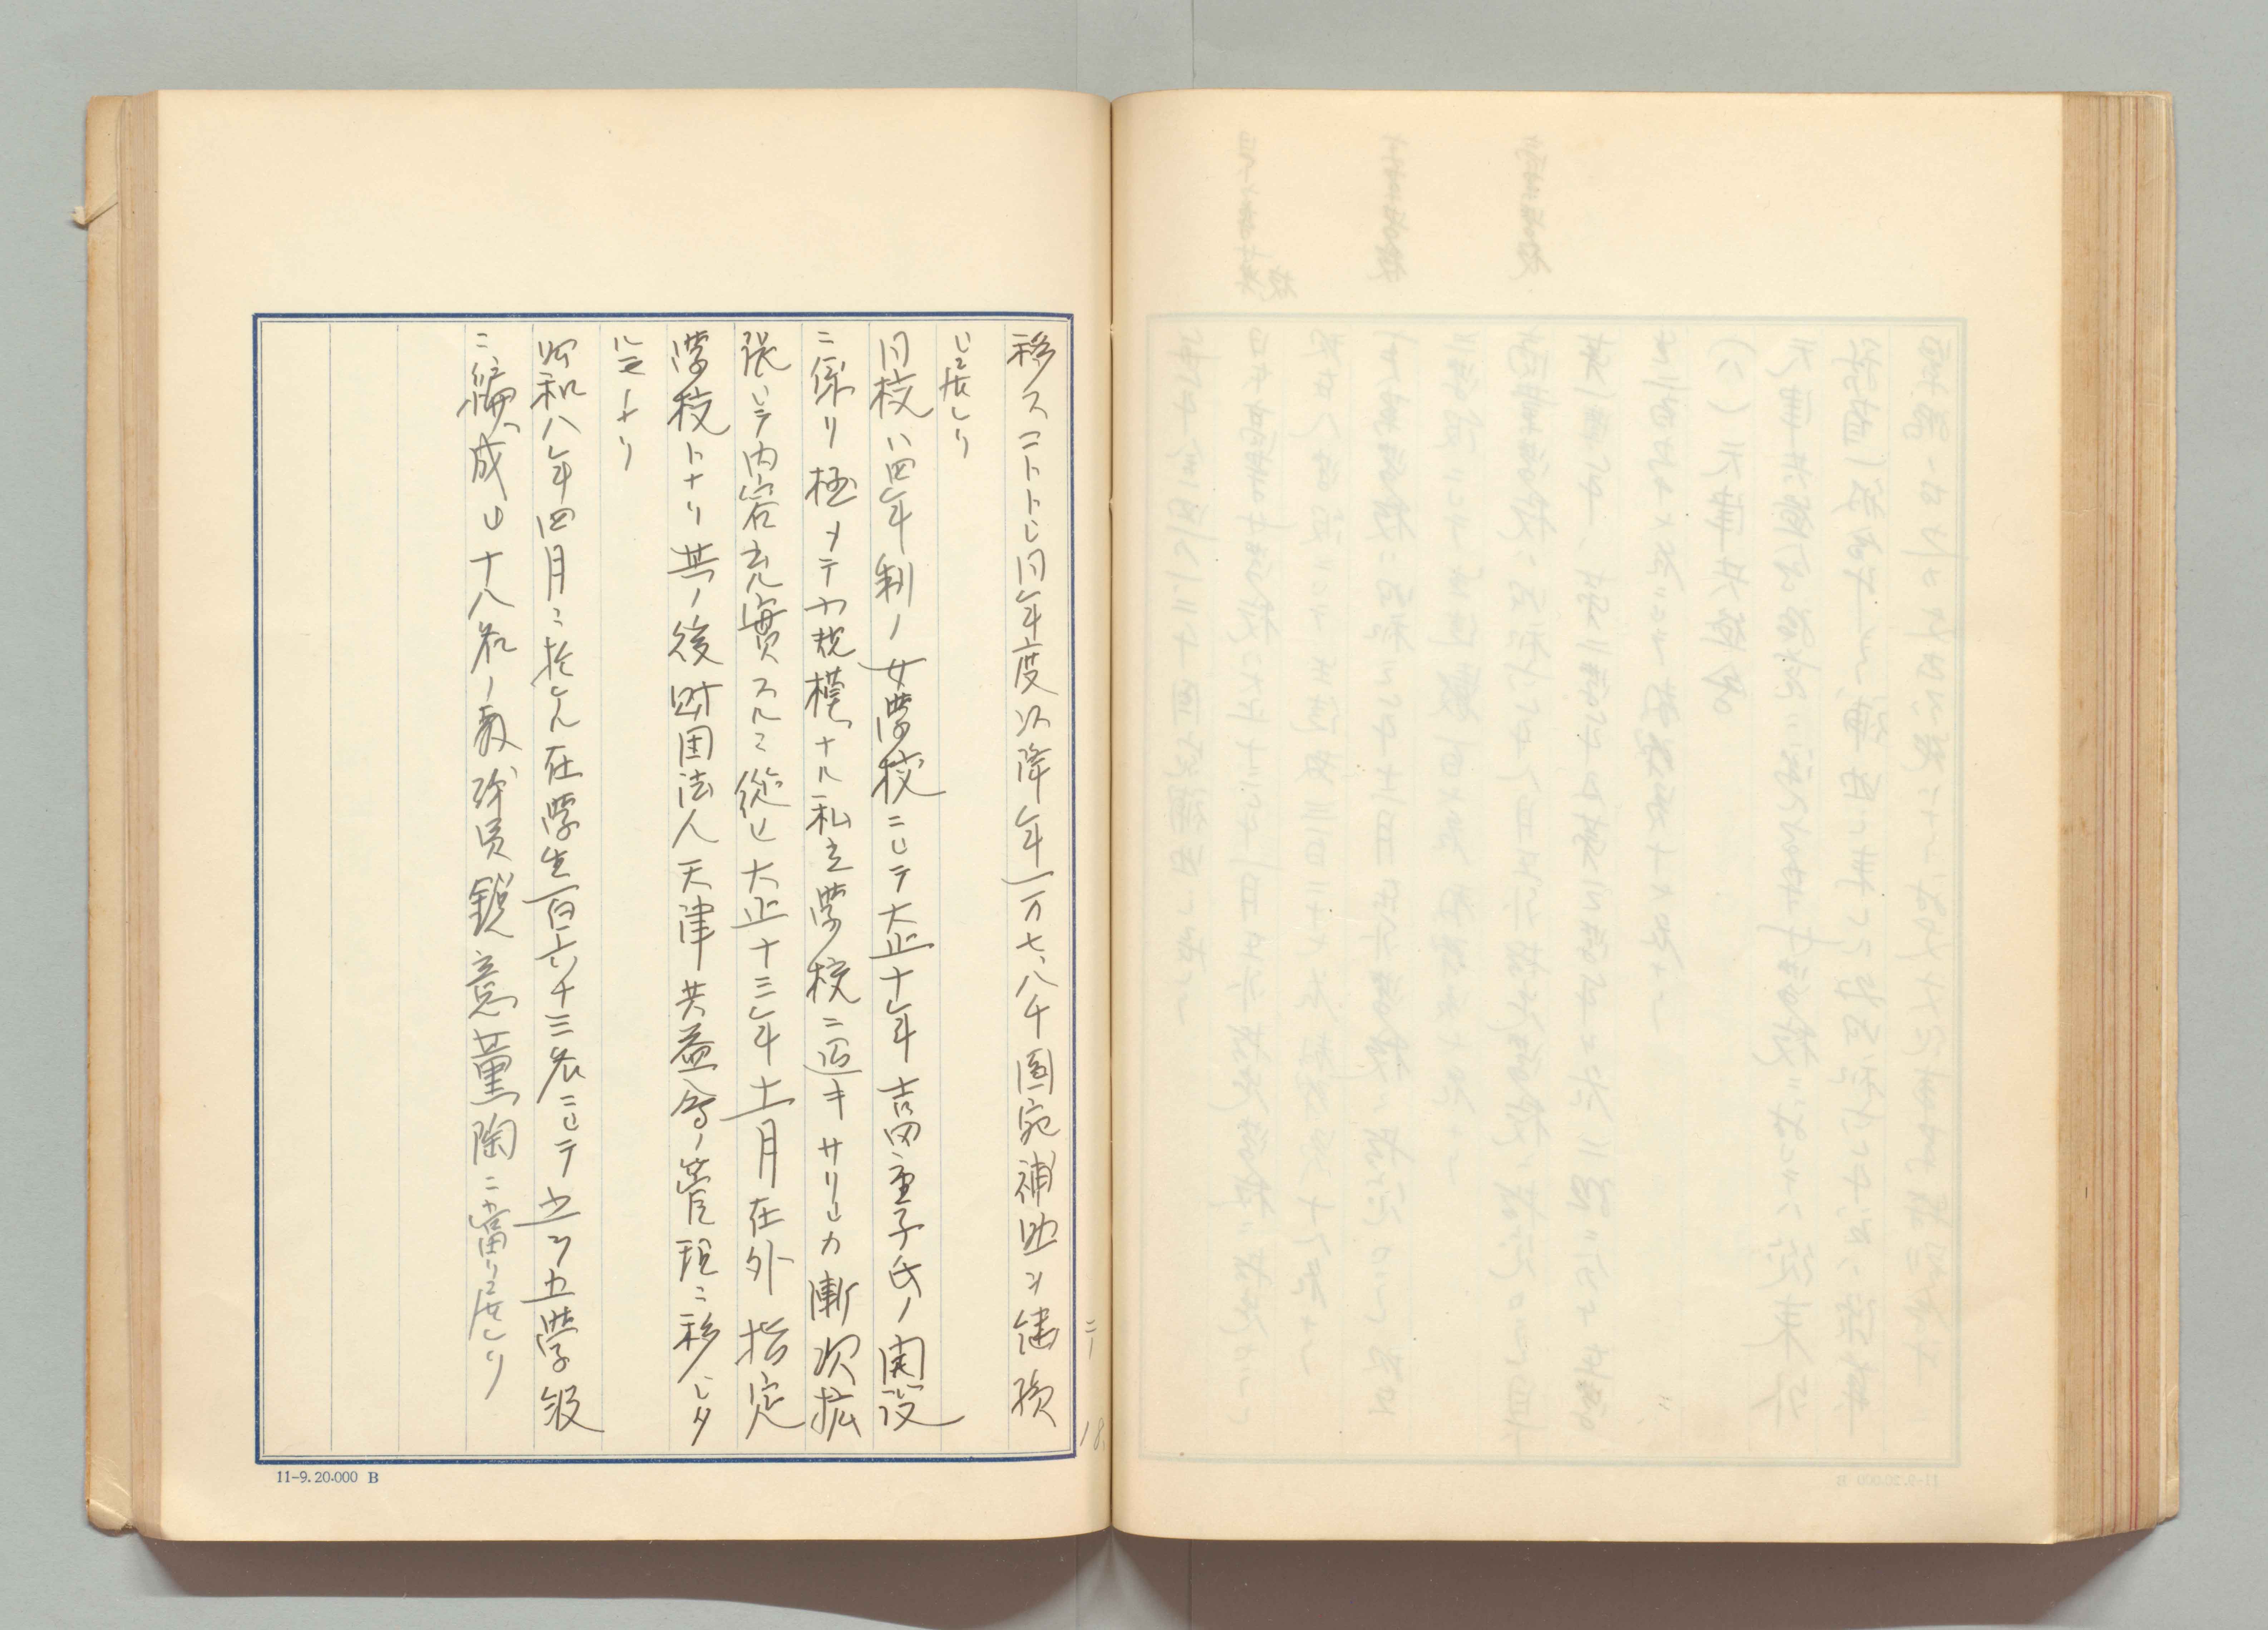 移スコトトシ同年度以降年一万七、八千圓宛補助ヲ継續
シ居レリ
同校ハ四年制ノ女學校ニシテ大正十年吉田重子氏ノ開設
ニ係リ極メテ小規模ナル私立學校ニ過キサリシカ漸次拡
張シテ内容充實スルニ從ヒ大正十三年十一月在外指定
學校トナリ其ノ後財団法人天津共益會ノ管理ニ移レタ
ルモノナリ
昭和八年四月ニ於ケル在學生百六十三名ニシテ之ヲ五學級
ニ編成シ十八名ノ教職員鋭意薫陶ニ當リ居レリ
11-9. 20.000 B